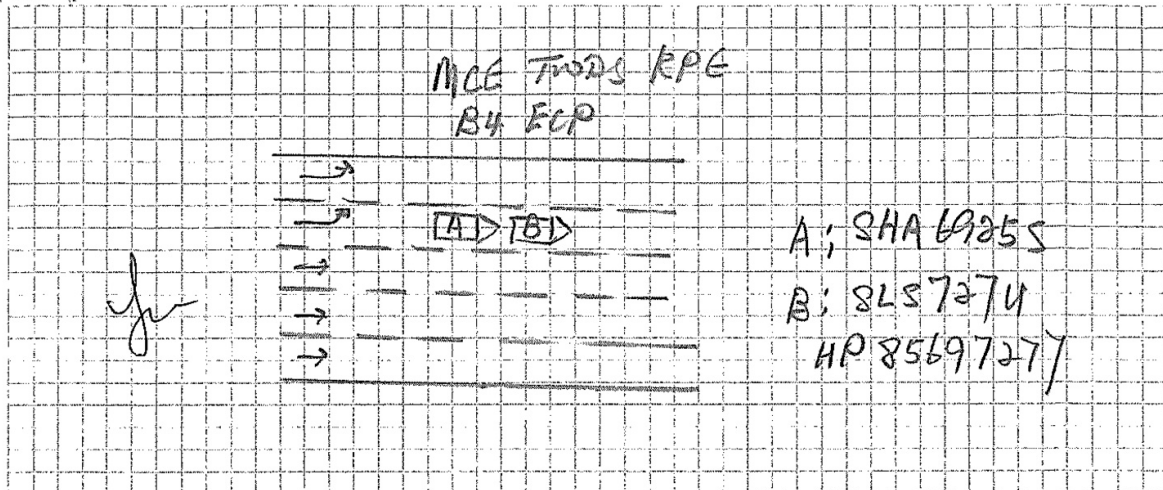 MCE TWDS KPE
B4 ECP
A B
A; SHA6925S
B: SLS7274U
HP 85697277